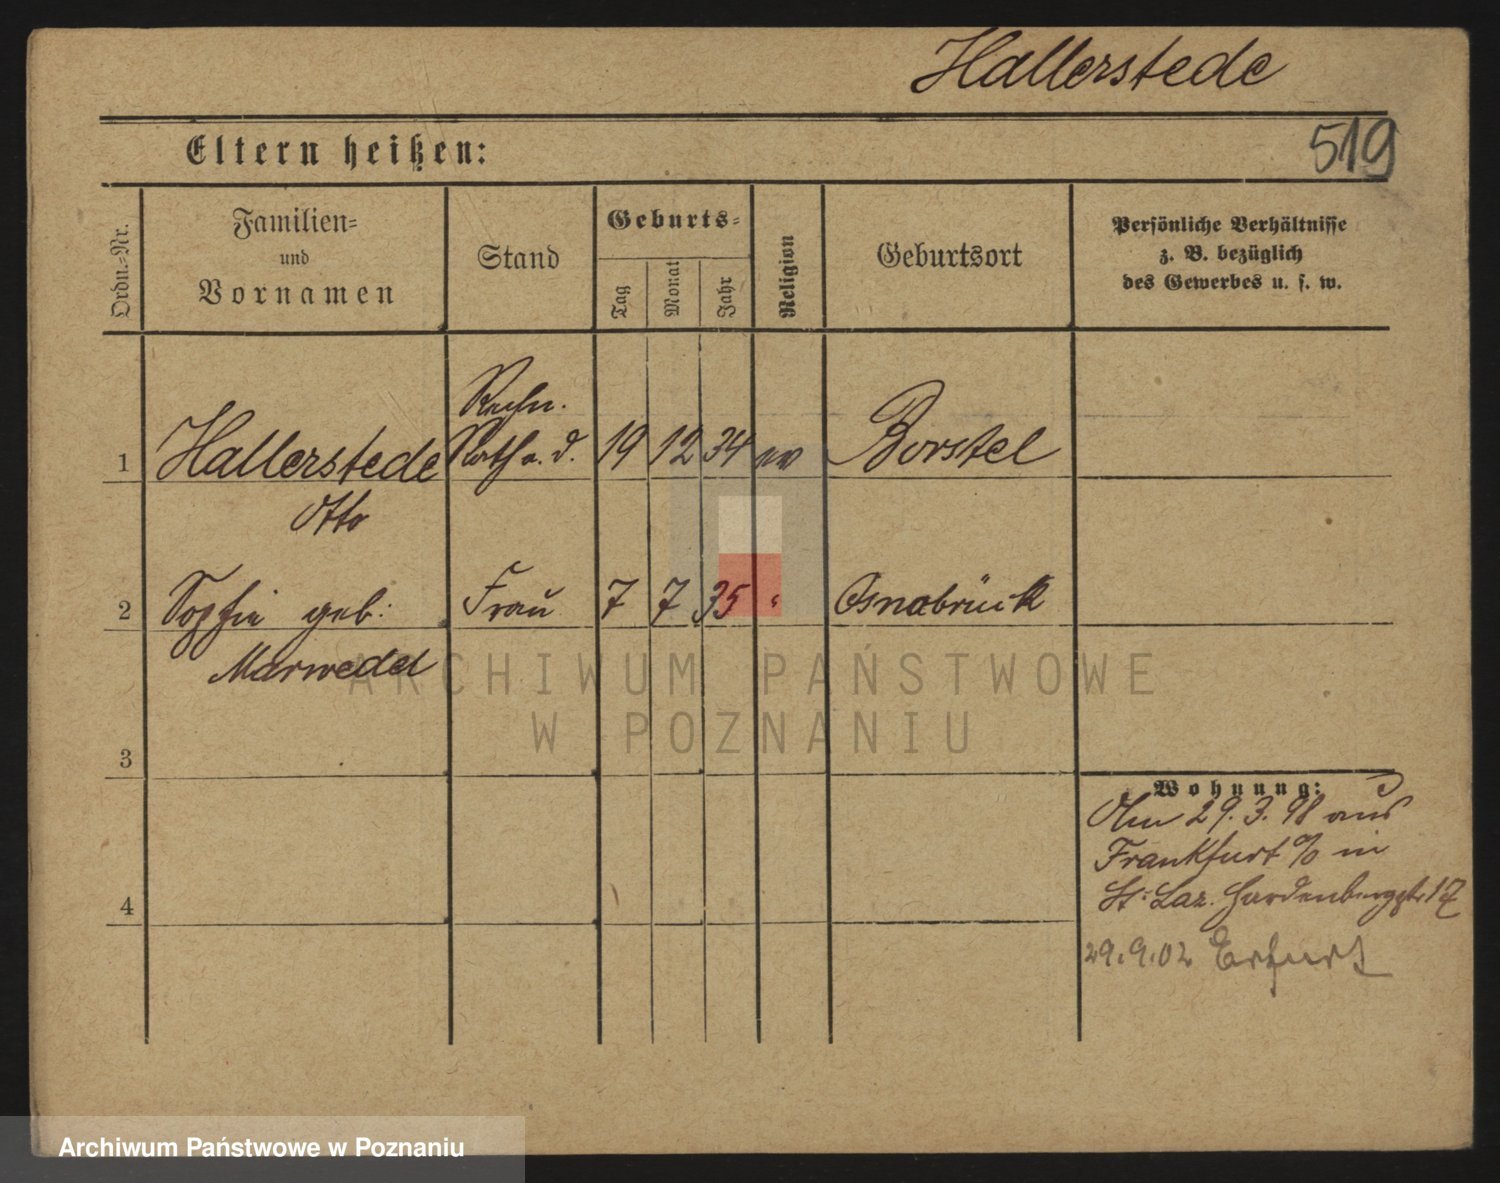 Hallerstede
519
Eltern heißen:
Ordn.-Nr.
Familien-
und
Vornamen
Stand
Geburts-
Tag
Monat
Jahr
Religion
Geburtsort
Persönliche Verhältnisse
z. B. bezüglich
des Gewerbes u. s. w.
Rechn.
1 Hallerstede Rath a. D. 19 12 34 ev Borstel
Otto
2 Sophie geb: Frau 7 7 35 " Osnabrück
Marwedel
ARCHIWUM PAŃSTWOWE
W POZNANIU
3
Wohnung:
29. 3. 98 aus
Frankfurt a/O in
4
St. Laz. Hardenbergstr. 17
29.9.02 Erfurt
Archiwum Państwowe w Poznaniu